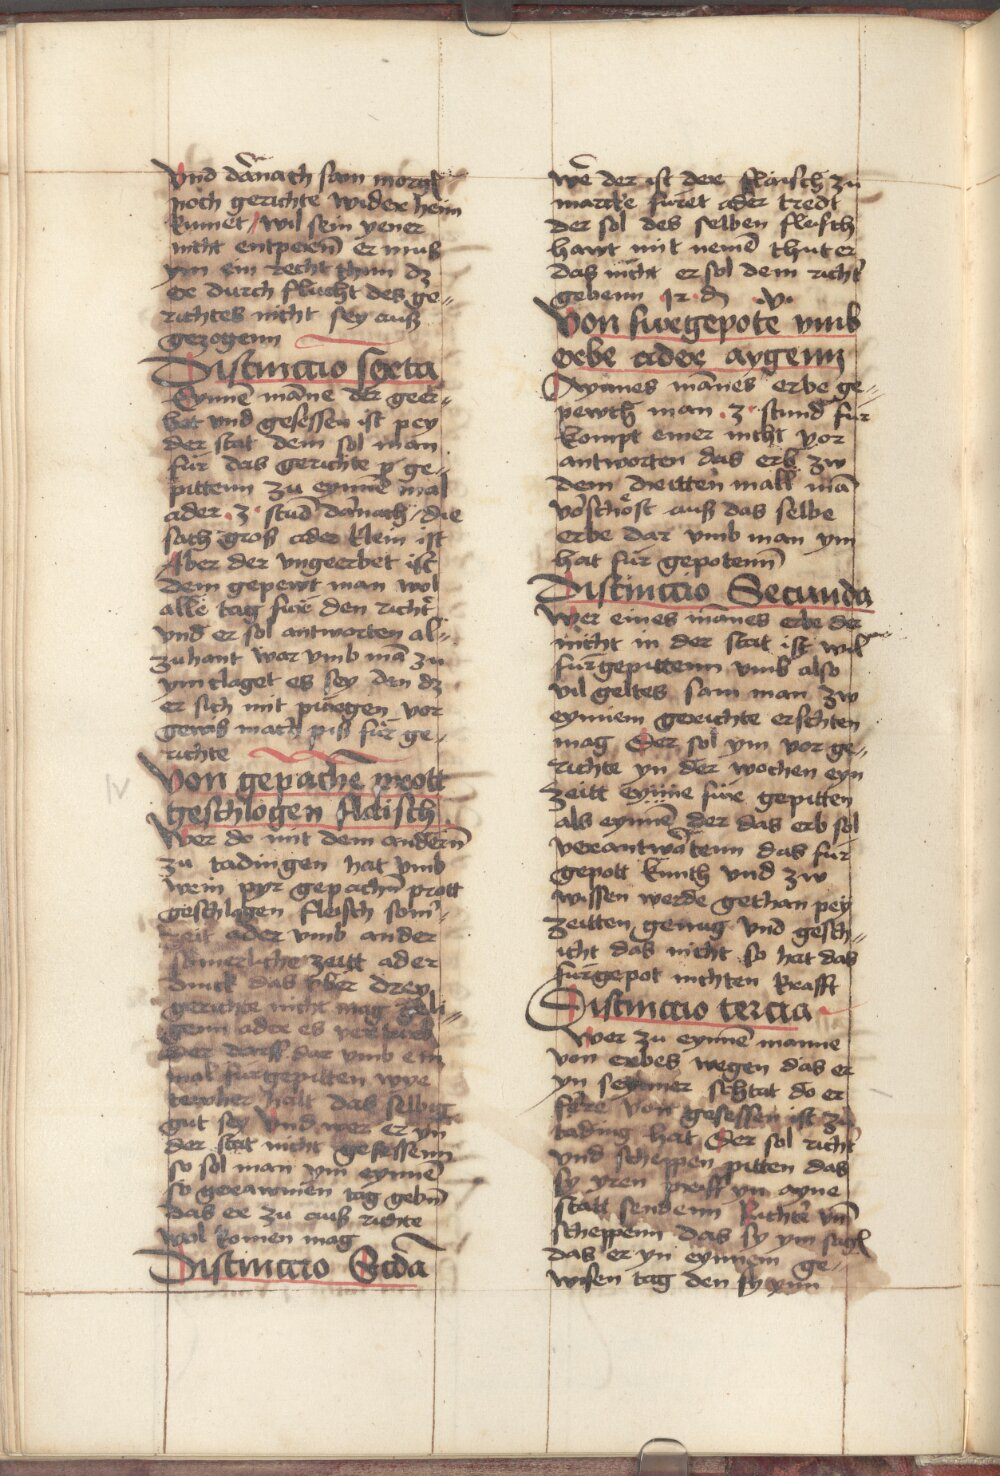 Vnd dānach sam morgē
noch gerichte wider heim
kumet / wil sein yener
nicht entperenn er muß
ym ein recht thun dz
er durch flucht des ge-
richtes nicht sey auß
gezogenn
Distinccio sexta
Eynnē māne der geer-
bet vnd gesessen ist pey
der stat dem sol man
für das gerichte p ge-
pittenn zu eynnē mal
ader ·3· stud dānach / die
sach groß ader klein ist
Aber der vngeerbet ist
dem gepewt man wol
alle tag für den richtˀ
vnd er sol antworten al-
zuhant war vmb mā zu
ym claget es sey den dz
er sich mit purgen vor
gewis machˀ piß für ge-
richte
Von gepachē prott
geschlogen flaisch
Wer do mit dem andern
zu tadingen hat vmb
wein pyr gepachn̄ prott
geschlagen fleisch
zeit ader vmb ander
zeitt ader
das vber drey
gerichte nicht mag
genn ader es
der darff dar vmb ein
mal furgepitten wye
das selbig
gut sey Vnd wer er yn
der stat nicht gesessenn
so sol man ym eynnē
so gerawmen tag gebn̄
das er zu auß richte
wol komen mag
Distinccio Scda
wē der ist der flaisch zu
marcke füret ader tredt
der sol des selben fleisch
hawt mit nemē thut er
das nicht er sol dem richtˀ
gebenn
Von furgepote vmb
erbe ader aygenn
Aynnes mānes erbe ge-
pewth man ·3· stund für
kompt einer nicht vor
antworten das erb zw
dem dritten mall mā
auß das selbe
erbe dar vmb man ym
hat für gepotenn
Distinccio Secunda
Wer eines mānes erbe der
nicht in der stat ist wil
furgepittenn vmb also
vil geltes sam man zw
eynnem gerichte
mag Der sol ym vor ge-
richte yn der wochen eyn
zeitt eynne für gepitten
als eynnē der das erb sol
verantwortenn das für
gepott kunth vnd zw
wissen werde gethan pey
zeitten genug vnd gesch-
icht das nicht so hat das
furgepot nichten krafft
Distinccio tercia
Wer zu eynnē manne
von erbes wegen das er
yn seynner schtat do er
von gesessen ist zu
tading hat Der sol richtˀ
vnd scheppen pitten das
sy yren yn ayne
statt sendenn Richtˀ vn̄
scheppenn das sy ym
das er yn eynnem ge-
wisen tag den sy ym